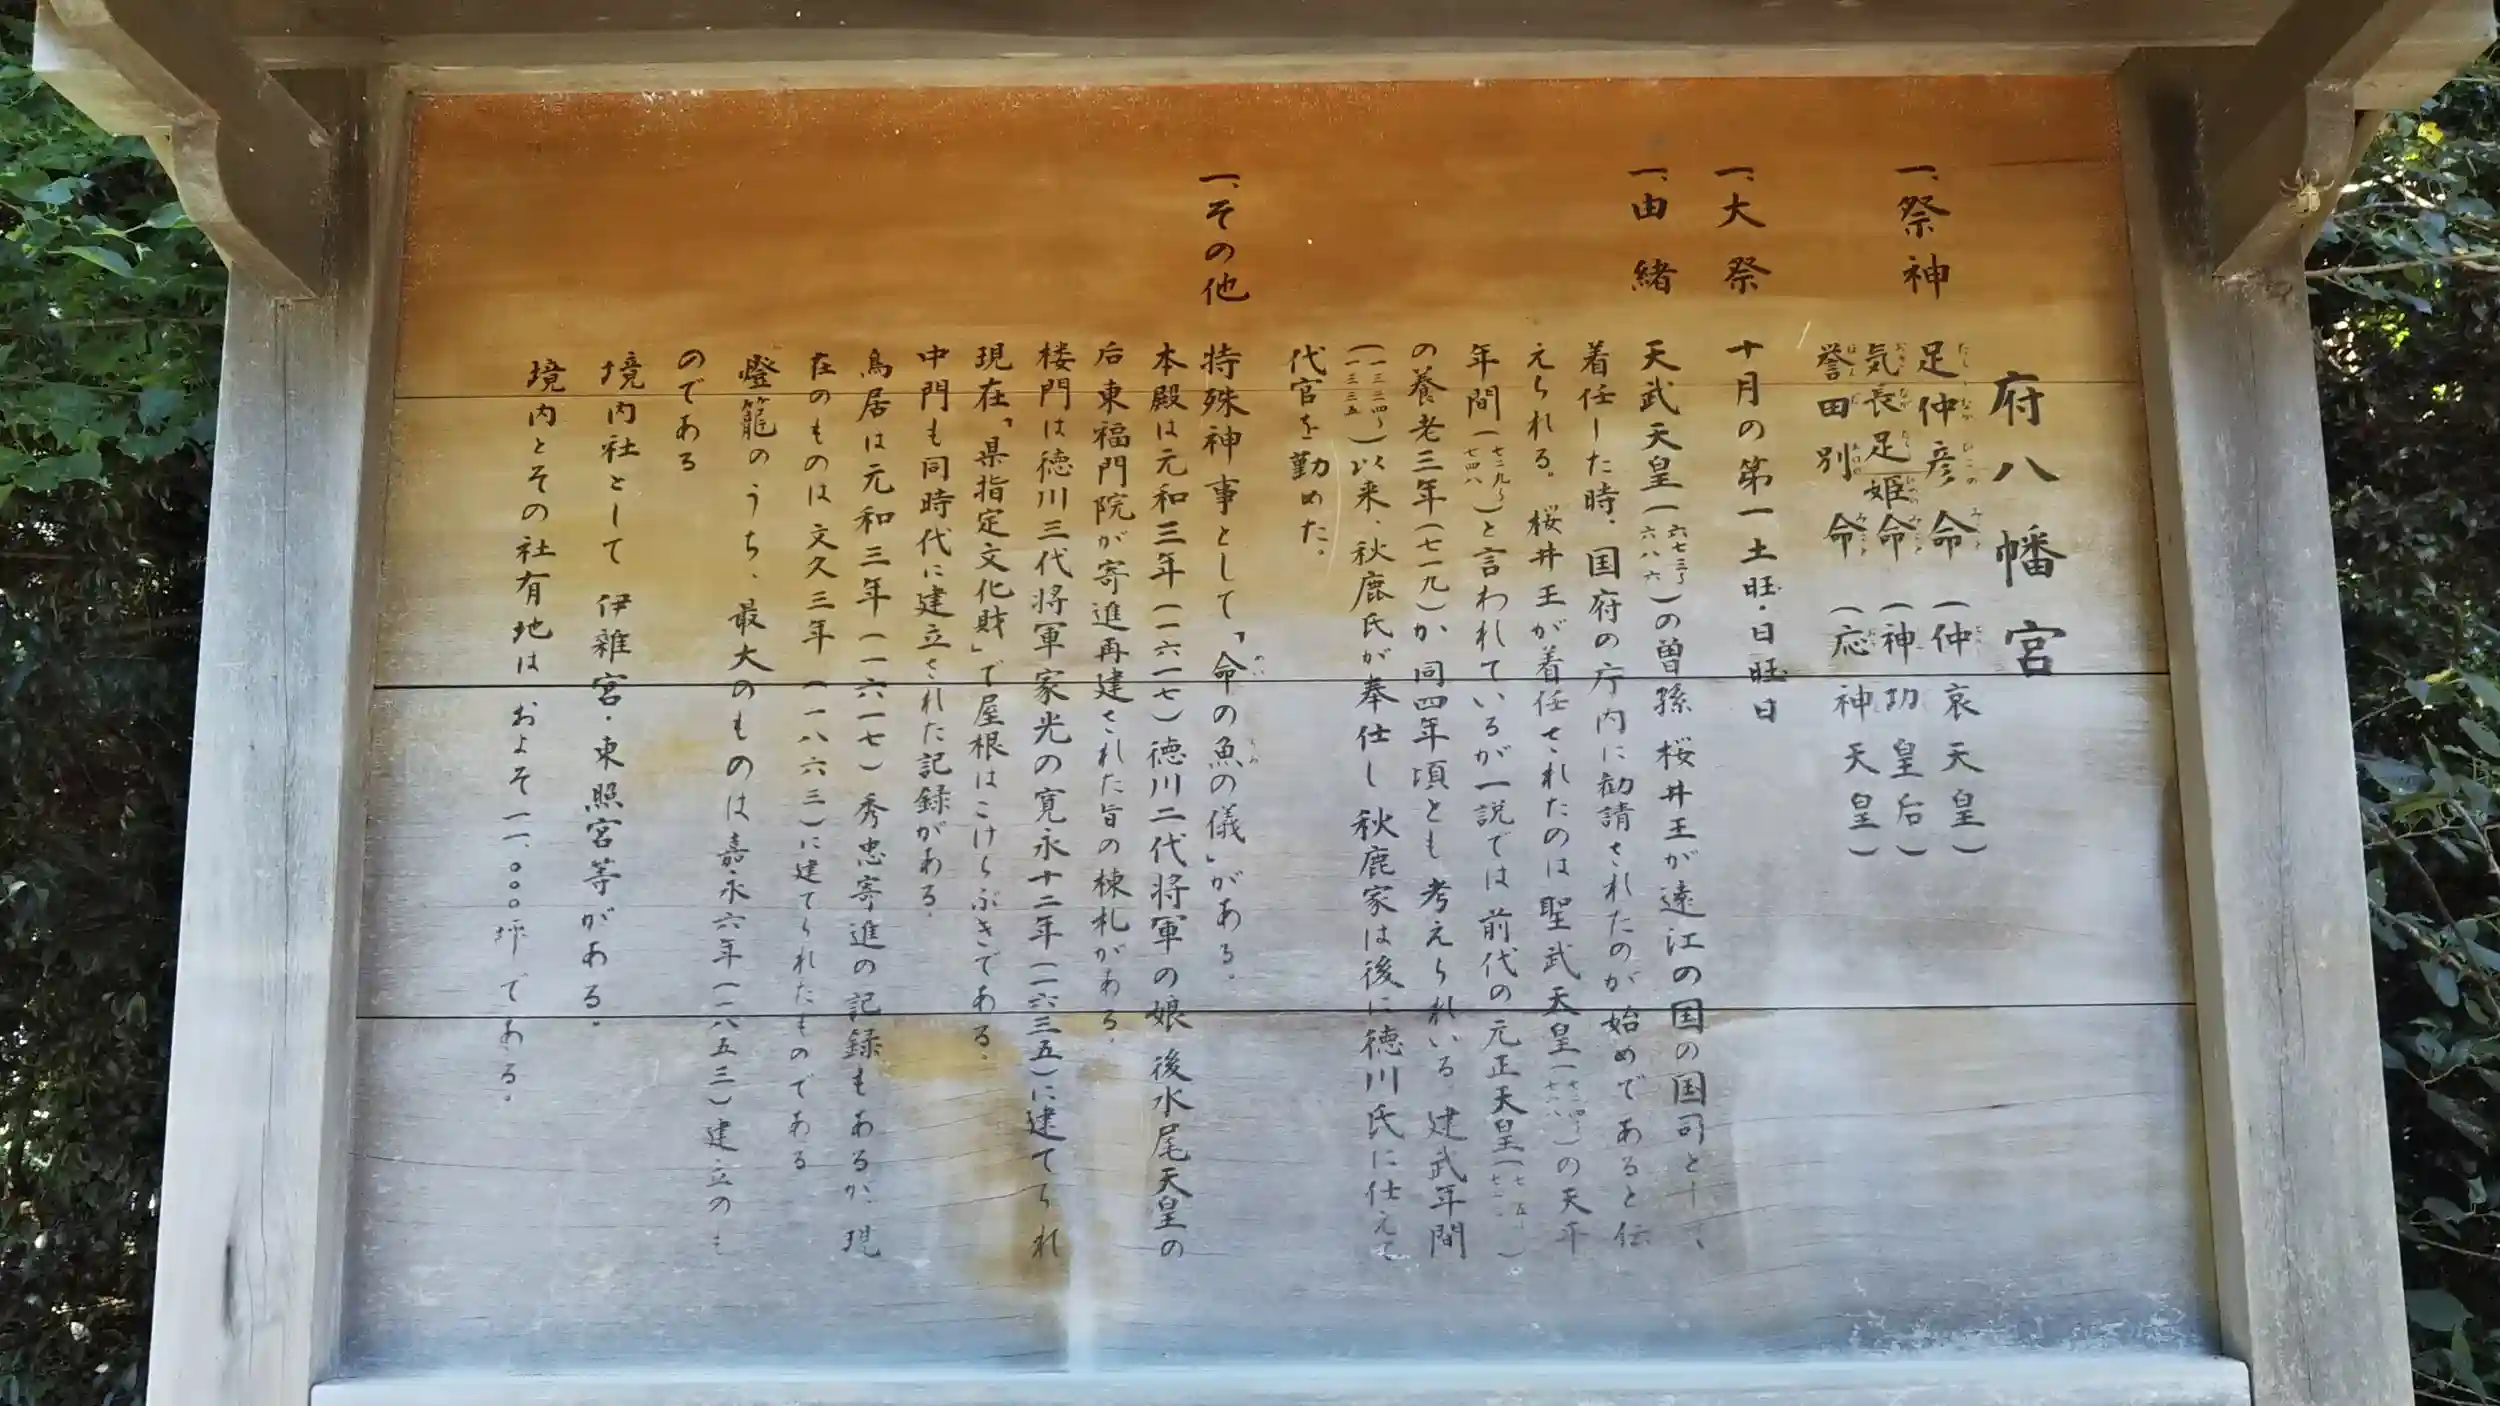 府八幡宮
一、祭神
足仲彦命（仲哀天皇）
気長足姫命（神功皇后）
誉田別命（応神天皇）
一、大祭
十月の第一土旺・日旺日
一、由緒
天武天皇（六七三〜六八六）の曽孫 桜井王が遠江の国の国司として、
着任した時、国府の庁内に勧請されたのが始めであると伝
えられる。桜井王が着任されたのは聖武天皇の天平
年間（七二九〜七四八）と言われているが一説では前代の元正天皇
の養老三年（七一九）か同四年頃とも考えられいる 建武年間
（一三三四〜一三三五）以来、秋鹿氏が奉仕し秋鹿家は後に徳川氏に仕えて
代官を勤めた。
一、その他
特殊神事として「命の魚の儀」がある。
本殿は元和三年（一六一七）徳川二代将軍の娘 後水尾天皇の
后東福門院が寄進再建された旨の棟札がある。
楼門は徳川三代将軍家光の寛永十二年（一六三五）に建てられ
現在「県指定文化財」で屋根はこけらぶきである。
中門も同時代に建立された記録がある。
鳥居は元和三年（一六一七）秀忠寄進の記録もあるが、現
在のものは文久三年（一八六三）に建てられたものである
燈籠のうち、最大のものは嘉永六年（一八五三）建立のも
のである
境内社として 伊雜宮・東照宮等がある。
境内とその社有地は およそ一一、〇〇〇坪である。